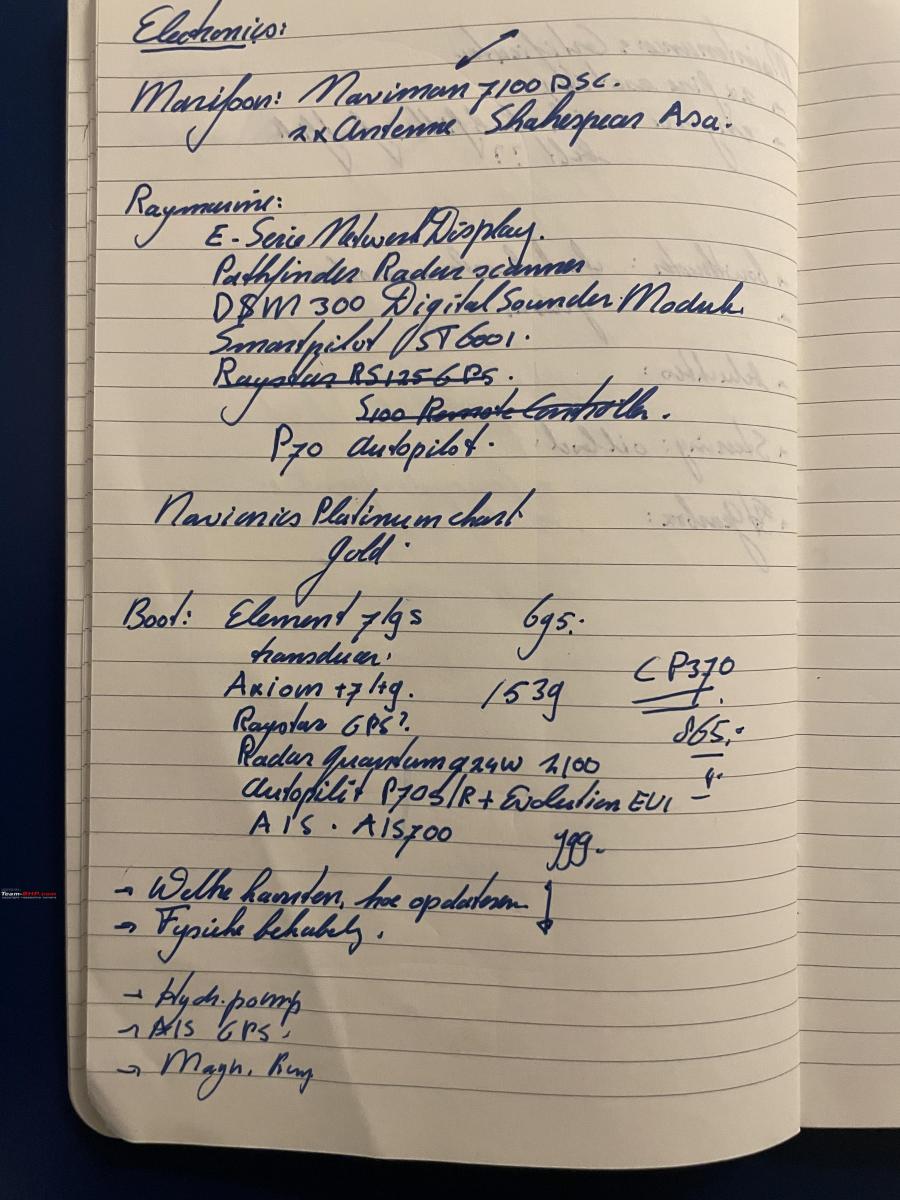 Electronics:
Marifoon: Naviman 7100 DSC.
2x Antenne Shakespear Asa.
Raymarine:
E-Serie Network Display.
Pathfinder Radar scanner
DSM 300 Digital Sounder Module
Smartpilot / ST6001.
Raystar RS125 GPS.
S100 Remote Controller.
P70 autopilot.
Navionics Platinum chart
gold.
Boot: Element 7/9s 695.-
transducer.
CP370
Axiom +7/+9. 1539
Raystar GPS?
865.-
Radar quantum q24W 2100
Autopilot P70s/R + Evolution EV1
AIS. AIS700
999.-
→ Welke kaarten, hoe opdateren
→ Fysieke
→ Hydr. pomp
→ AIS GPS.
→ Magn.
Team-BHP.com